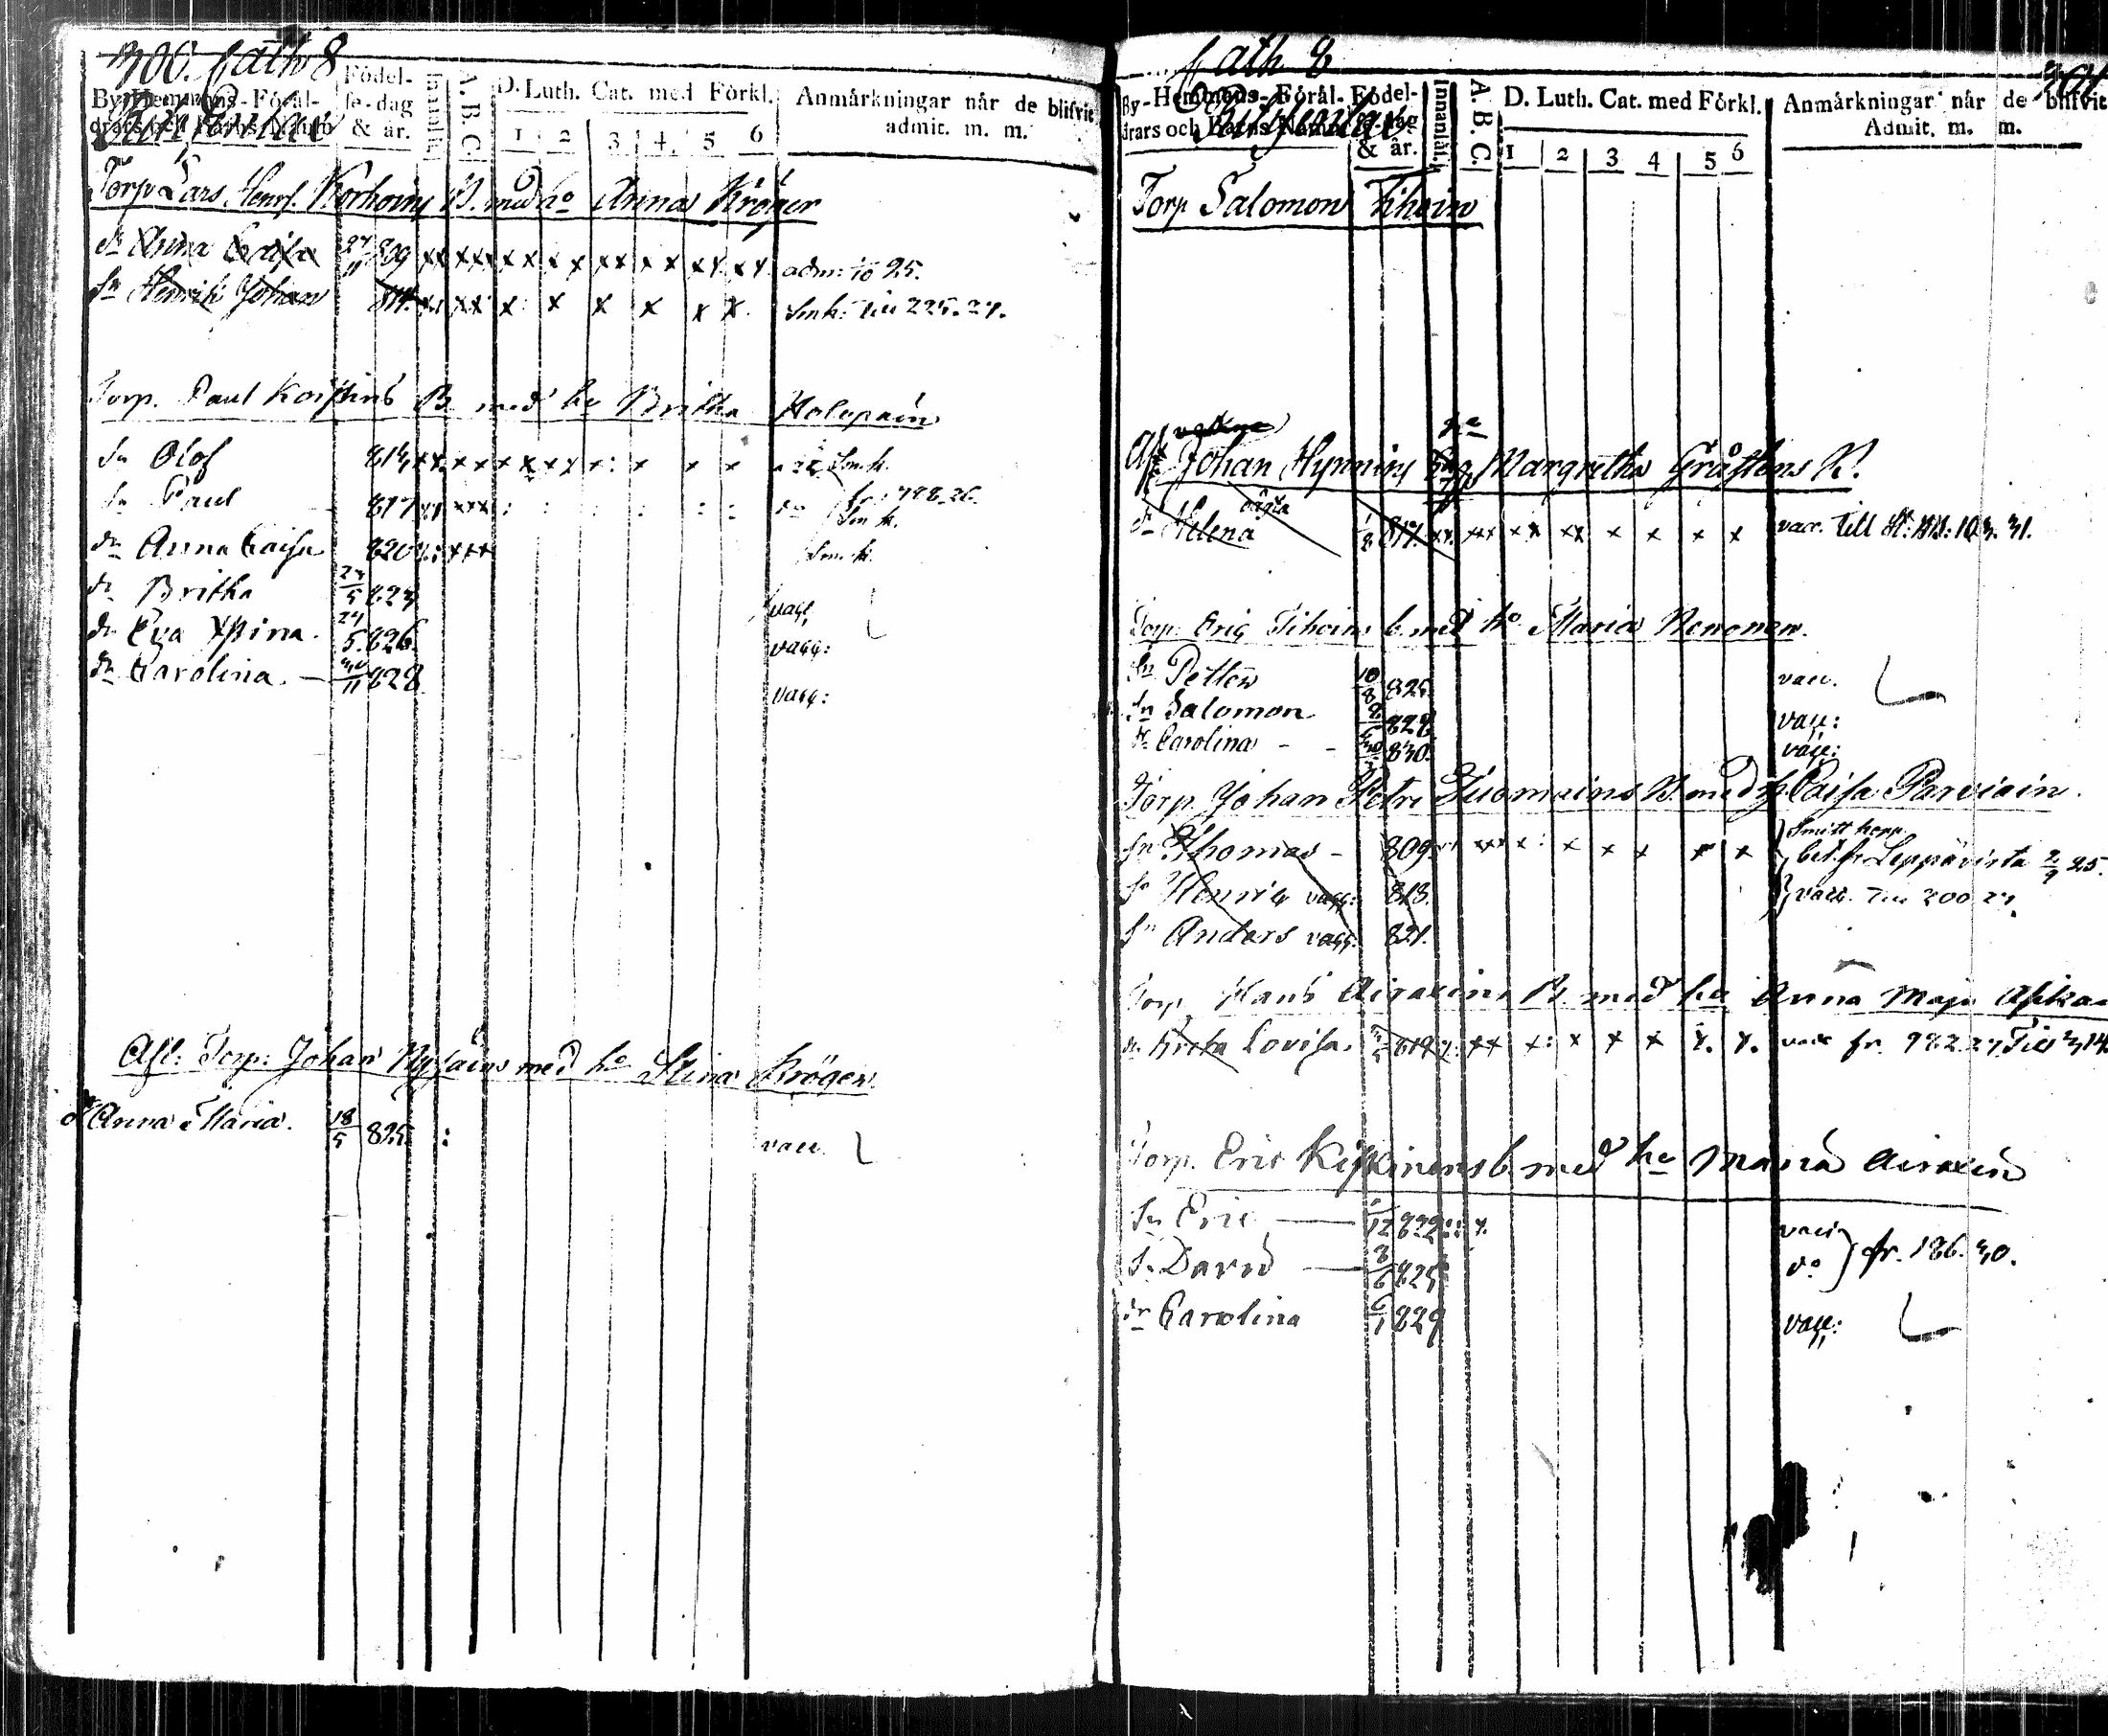 300. Cath 8
By-Hemmans-Föräl-
drars och Barns Namn
Födel-
se-dag
& år.
A. B. C.
D. Luth. Cat. med Förkl.
1 2 3 4 5 6
Anmärkningar når de blifvit
admit. m. m.
Torp Lars Henrs. Korhoins B. med ho Anna Kröger
dr Anna Caisa 27/11 809 xx xxx xx xx xx xx xx xx adm: 10 25.
Sn Henrik Johan 814. xx xx x: x x x x x. Smk: Till 225. 27.
Torp. Paul B. med ho Britha Holopain
Sn Olof 814 xx xx xx xxx x: x x x Smk.
Sn Paul 817 xx xxx : : : : : : fr: 798. 26.
Smk.
dr Anna Caisa 820 x: xxx Smk.
dr Britha 23/5 823 vacc
dr Eva Xstina. 24/5 826 vacc:
dr Carolina. — 30/11 828 vacc:
Afl: Torp: Johan med ho Stina Kröger
dr Anna Maria. 18/5 825 : vacc.
Cath 8
301
By-Hemmans-Föräl-
drars och Barns Namn
Födel-
se-dag
& år.
Innanläs.
A. B. C.
D. Luth. Cat. med Förkl.
1 2 3 4 5 6
Anmärkningar når de blifvit
Admit. m. m.
Torp Salomon Tihoin
Afl: Johan Hynnins Margretha Gråstens B.
oägta
dr Helena 1/8 817. xx. xxx xx xx x x x x vacc. Till
Torp. Eric Tihoins b. med ho Maria Nenonen.
Sn Petter 10/8 825. vacc.
Sn Salomon 828 vacc:
dr Carolina - - 830. vacc:
Torp. Johan Petrs Tuomains B. med h Caisa Parviain.
Sn Thomas - 809. xxx x: x x x x x Smitt kopp.
bet. fr. Leppävirta 2/9 25.
Sn Henric vacc: 818. vacc. Till 200 27.
Sn Anders vacc. 821.
Torp. Hans Airaxins B. med ho Anna Maja
dr Greta Lovisa. 819 x: xx x: x x x x. x. vacc fr. 982. 27 Till 314
Torp. Eric Kiskinens b. med ho Maria Airaxin
Sn Eric — 1/12 822 :: x. vacc
S. David — 3/6 825 do } fr. 186. 30.
dr Carolina 6/1 829 vacc: